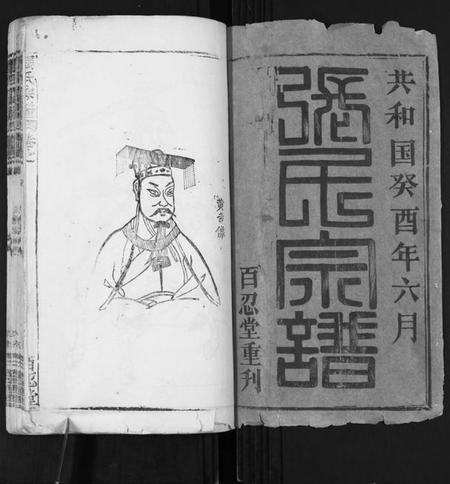 共和国癸酉年六月
張氏宗譜
百忍堂重刊
黄帝像
百忍堂